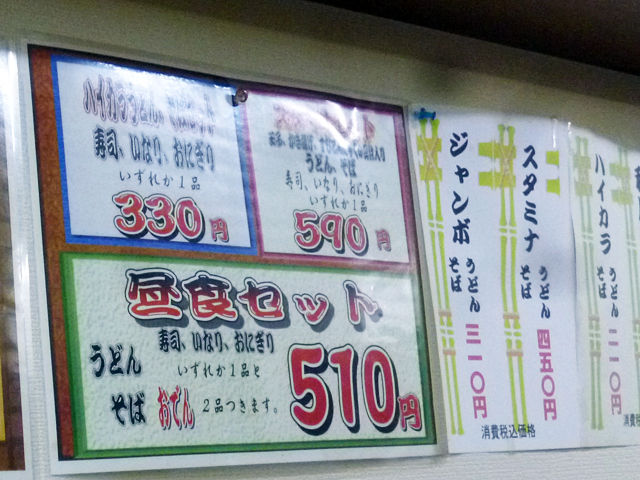 ハイカラうどん
寿司、いなり、おにぎり
いずれか1品
330円
うどん、そば
寿司、いなり、おにぎり
いずれか1品
590円
昼食セット
うどん
そば
寿司、いなり、おにぎり
いずれか1品と
おでん 2品つきます。
510円
ジャンボ
うどん
そば
三一〇円
スタミナ
うどん
そば
四五〇円
消費税込価格
ハイカラ
うどん
そば
二一〇円
消費税